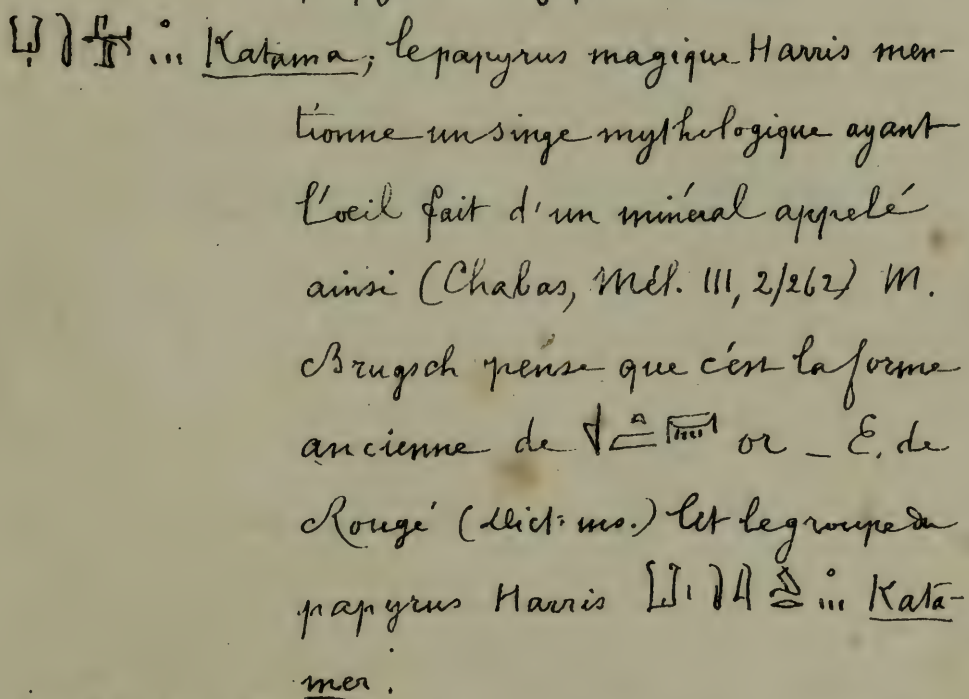 Katama; le papyrus magique Harris men-
tionne un singe mythologique ayant
l'oeil fait d'un minéral appelé
ainsi (Chabas, Mél. III, 2/262) M.
Brugsch pense que c'est la forme
ancienne de or _ E. de
Rougé (Dict. ms.) lit le groupe du
papyrus Harris Kata-
mer.